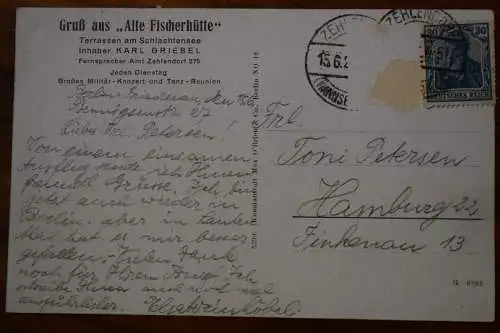 Gruß aus „Alte Fischerhütte"
Terrassen am Schlachtensee
Inhaber KARL GRIEBEL
Fernsprecher Amt Zehlendorf 270
Jeden Dienstag
Großes Militär-Konzert und Tanz-Reunion
Berlin-Friedenau, den 15.6.
27
Liebe Frl. Petersen!
Von einem einsamen
Ausflug sende Ihnen
Grüsse. Ich bin
jetzt auch wieder in
Berlin, aber in
hat es mir besser
gefallen. Vielen Dank
noch für Ihren Brief. Ich
schreibe Ihnen auch noch mal
ausführlicher.
Kunstanstalt Max O'Brien & Co., Berlin NO 18
ZEHLENDORF
15.6.2
(WANNSEE
30
DEUTSCHES REICH
Frl.
Toni Petersen
Hamburg 22
Finkenau 13
G 6393